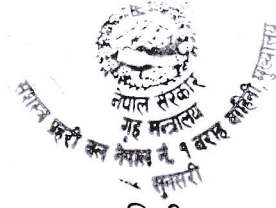 नेपाल सरकार
गृह मन्त्रालय
सशस्त्र प्रहरी बल नेपाल नं. १ बराह बाहिनी, मुख्यालय
सुनसरी